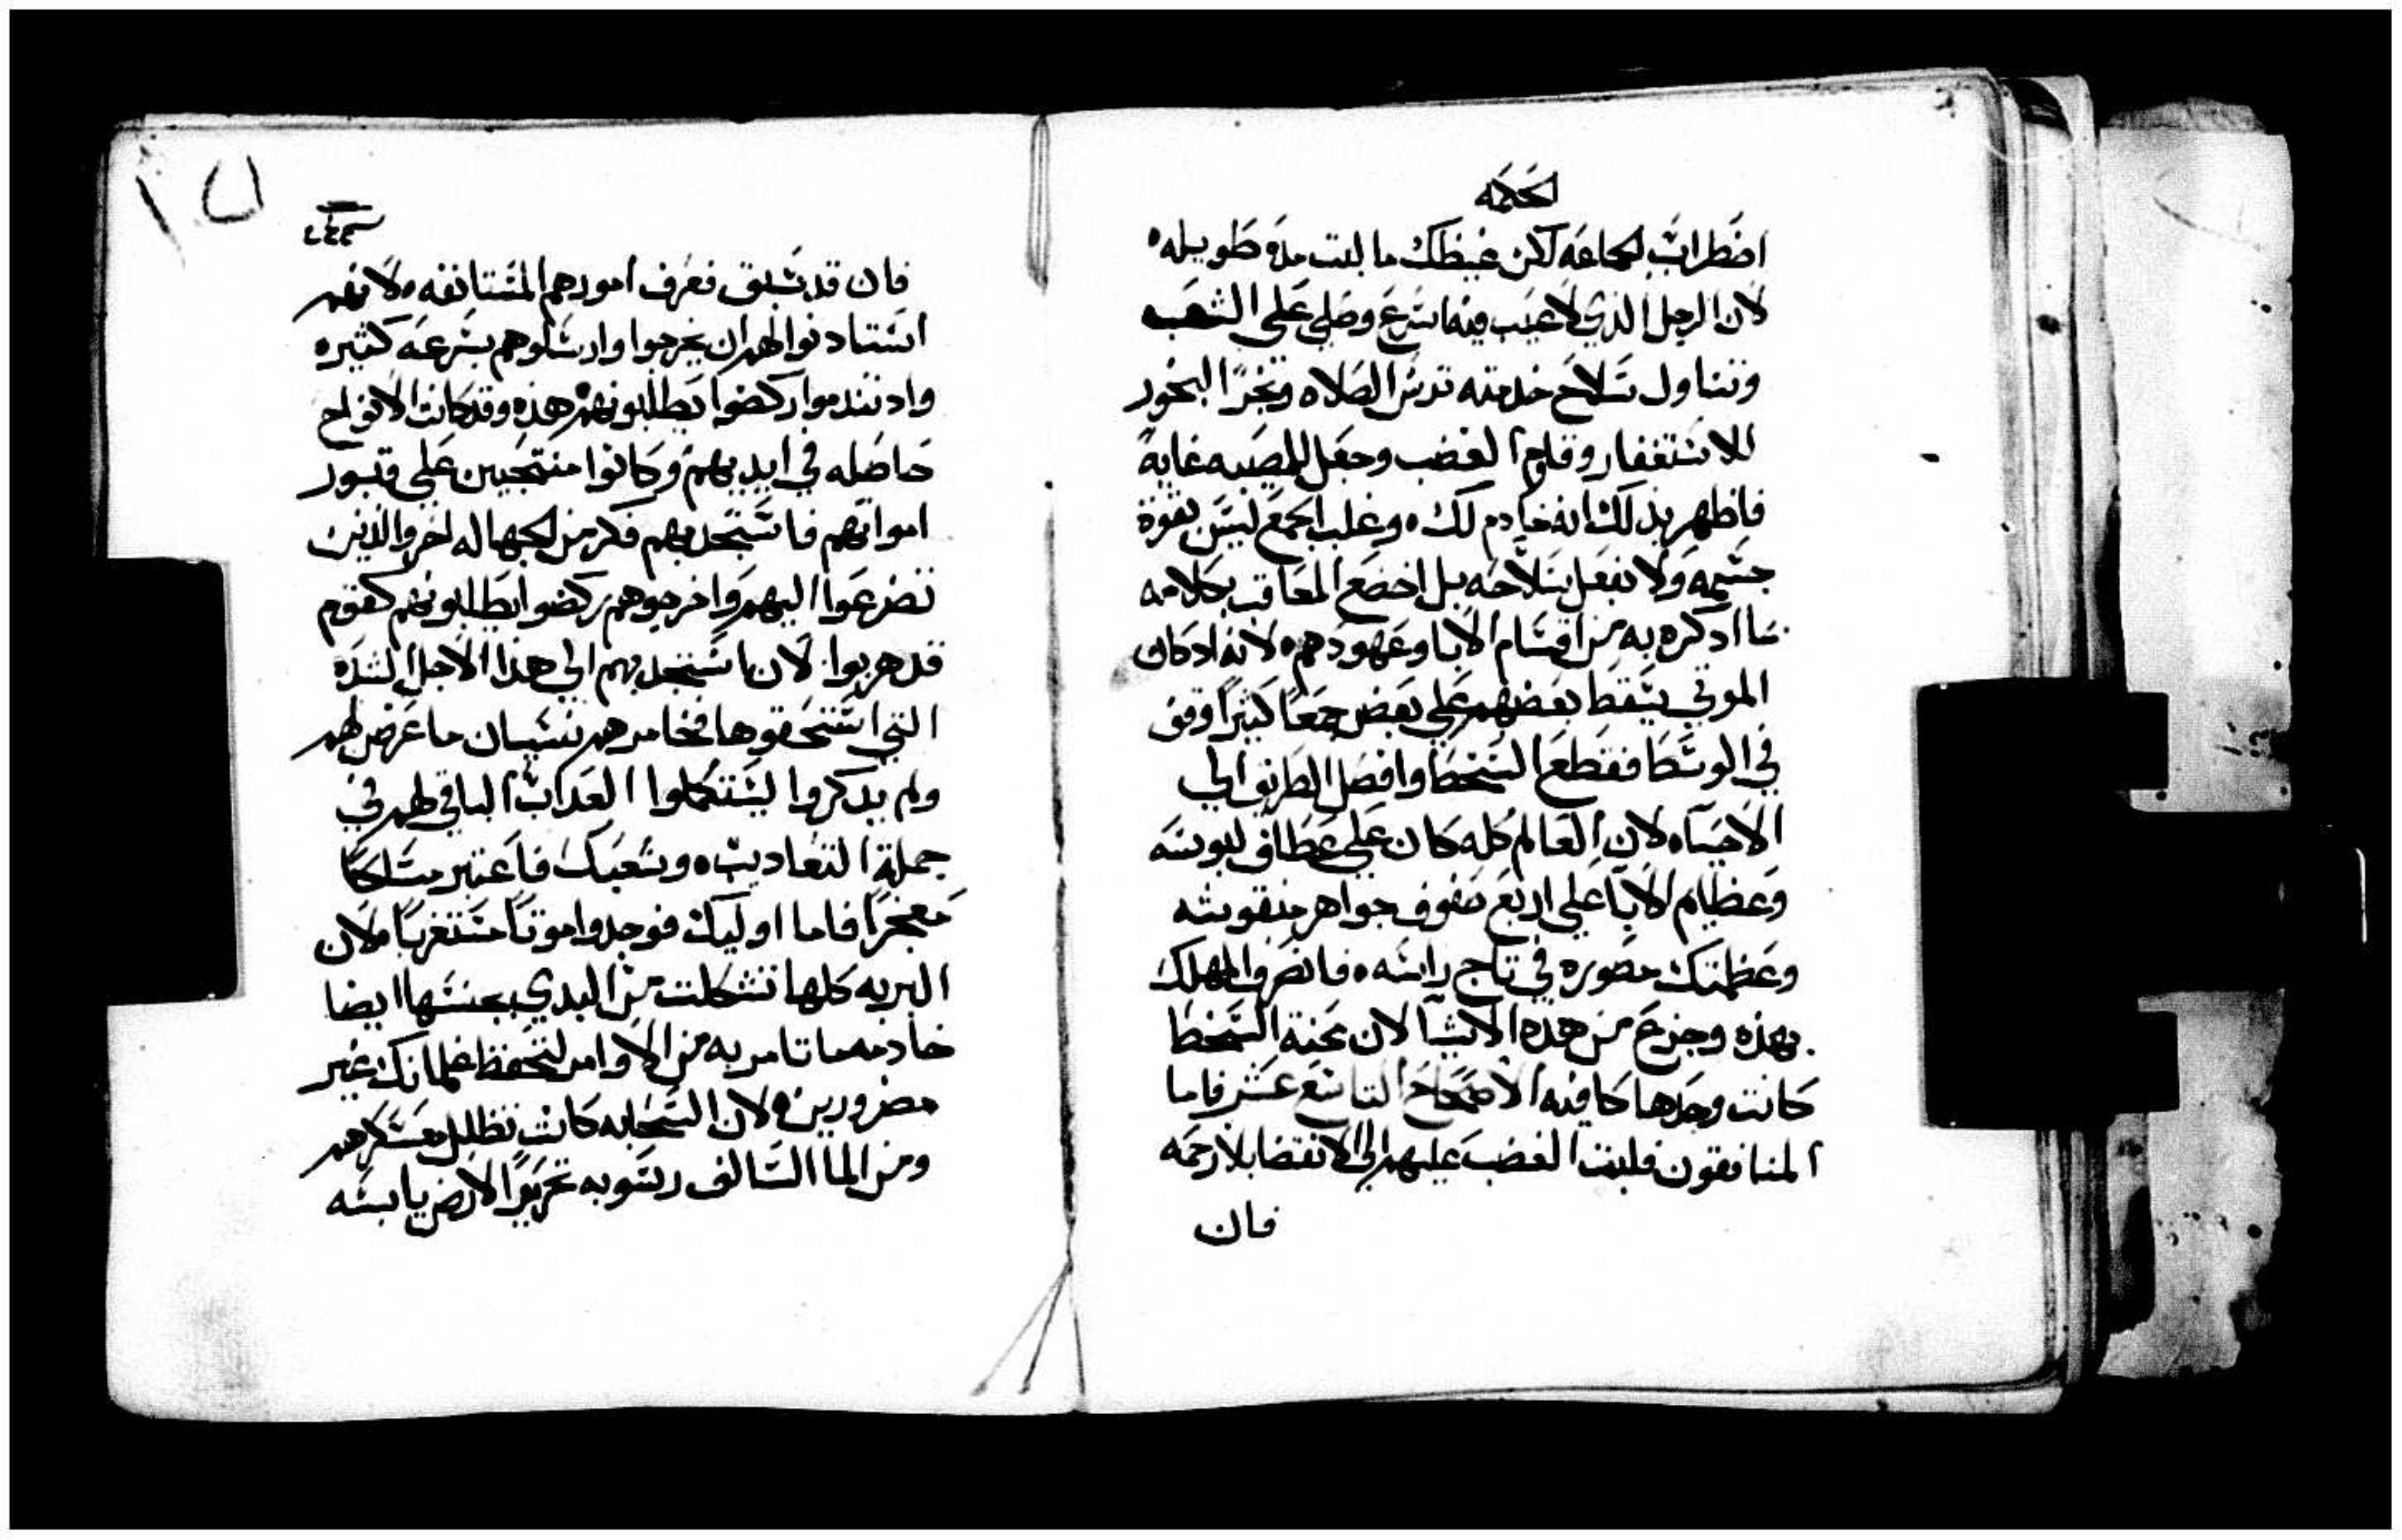 الحكمه
اضطراب الجماعه لكن غيظك ما لبت مدة طويله
لان الرجل الذي لا عيب فيه اسرع وصلي علي الشعب
وتناول سلاح خدمته ترس الصلاه وتبخر البخور
للاستغفار وقاوم الغضب وجعل للمصيبه غاية
فاظهر بذلك انه خادم لك وغلب الجمع ليس بقوة
جسمه ولا بفعل سلاحه بل اخضع المعاقب بكلامه
بما ادكره به من اقسام الابا وعهودهم لانه اد كان
الموتي يسقط بعضهم علي بعض جمعا كثيرا وقف
في الوسط فقطع السخط وافصل الطريق الي
الاحياه لان العالم كله كان علي عطاف لبوسه
وعظايم الابا علي اربع صفوف جواهر منقوشه
وعظمتك مصوره في تاج راسه فانصرف المهلك
بهذه وجزع من هذه الاشيا لان محنة السخط
كانت وحدها كافيه الاصحاح التاسع عشر فاما
المنافقون فلبت الغضب عليهم الي الانقضا بلا رحمه
فان
فان قد سبق فعرف امورهم المستانفه لانهم
استادنوا لهم ان يخرجوا وارسلوهم بسرعه كثيره
واد تندموا ركضوا يطلبونهم هذه وقد كانت الانواح
حاصله في ايديهم وكانوا منتحبين علي قبور
امواتهم فاستجد بهم فكر من الجهاله اخر والذين
تضرعوا اليهم واخرجوهم ركضوا يطلبونهم كقوم
قد هربوا لان استجد بهم الي هذا الاجل الشده
التي استحقوها فخامرهم نسيان ما عرض لهم
ولم يدكروا ليستكملوا العداب الباقي لهم في
جملة التعاديب وشعبك فاعتبر مسلكا
معجزا فاما اوليك فوجدوا موتا مستغربا لان
البريه كلها تشكلت من البدي بجنسها ايضا
خادمه ما تامر به من الاوامر لتحفظ غلمانك غير
مضرورين لان السحابه كانت تظلل عسكرهم
ومن الما السالف رسوبه تحريرا الارض يابسه